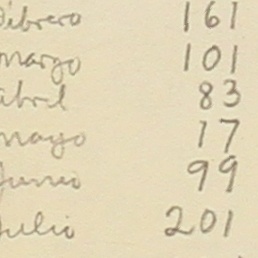 Febrero 161
marzo 101
abril 83
mayo 17
Junio 99
Julio 201